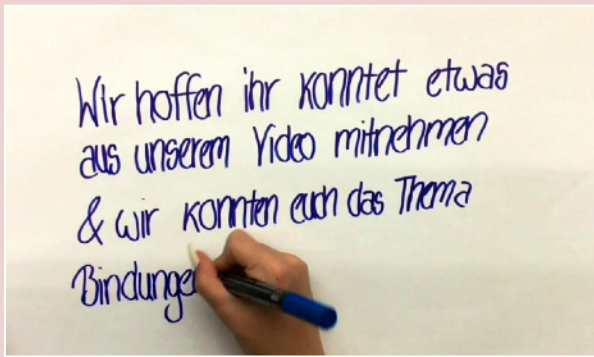 Wir hoffen ihr konntet etwas
aus unserem Video mitnehmen
& wir konnten euch das Thema
Bindunge